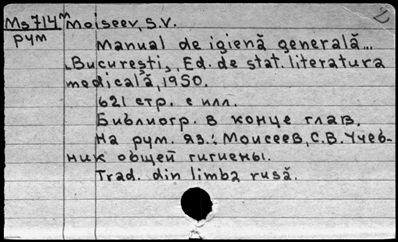 Ms714 м Moiseev, S.V.
рум
Manual de igienă generală...
București, Ed. de stat. literatura
medicală, 1950.
621 стр. с илл.
Библиогр. в конце глав.
На рум. яз.: Моисеев, С.В. Учеб-
ник общей гигиены.
Trad. din limba rusă.